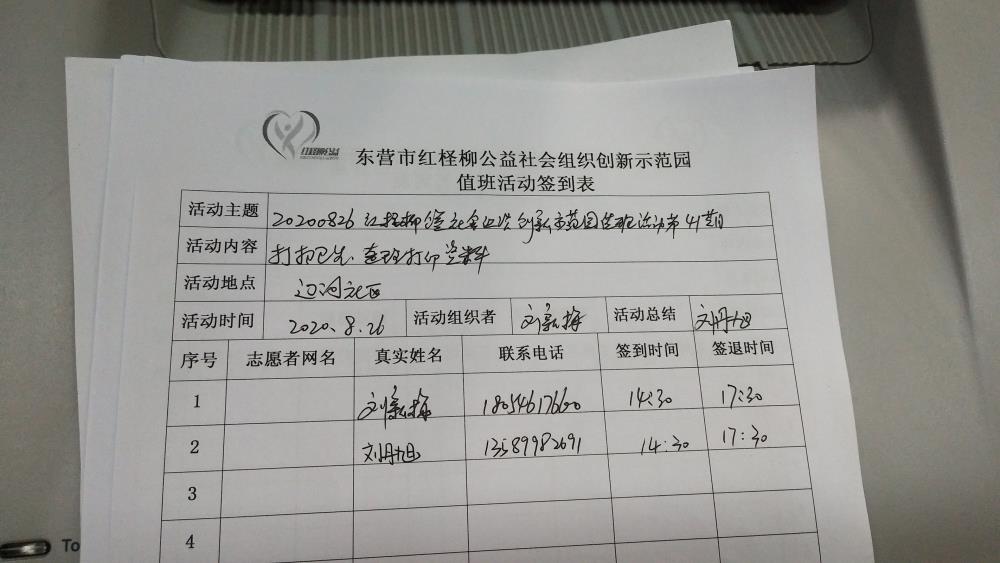 红柽柳公益
东营市红柽柳公益社会组织创新示范园
值班活动签到表
活动主题 20200826 红柽柳公益社会组织创新示范园值班活动第41期
活动内容 打扫卫生、整理打印资料
活动地点 辽河社区
活动时间 2020.8.26 活动组织者 刘新梅 活动总结 刘丹旭
序号 志愿者网名 真实姓名 联系电话 签到时间 签退时间
1 刘新梅 18054617660 14:30 17:30
2 刘丹旭 13589982691 14:30 17:30
3
4
To